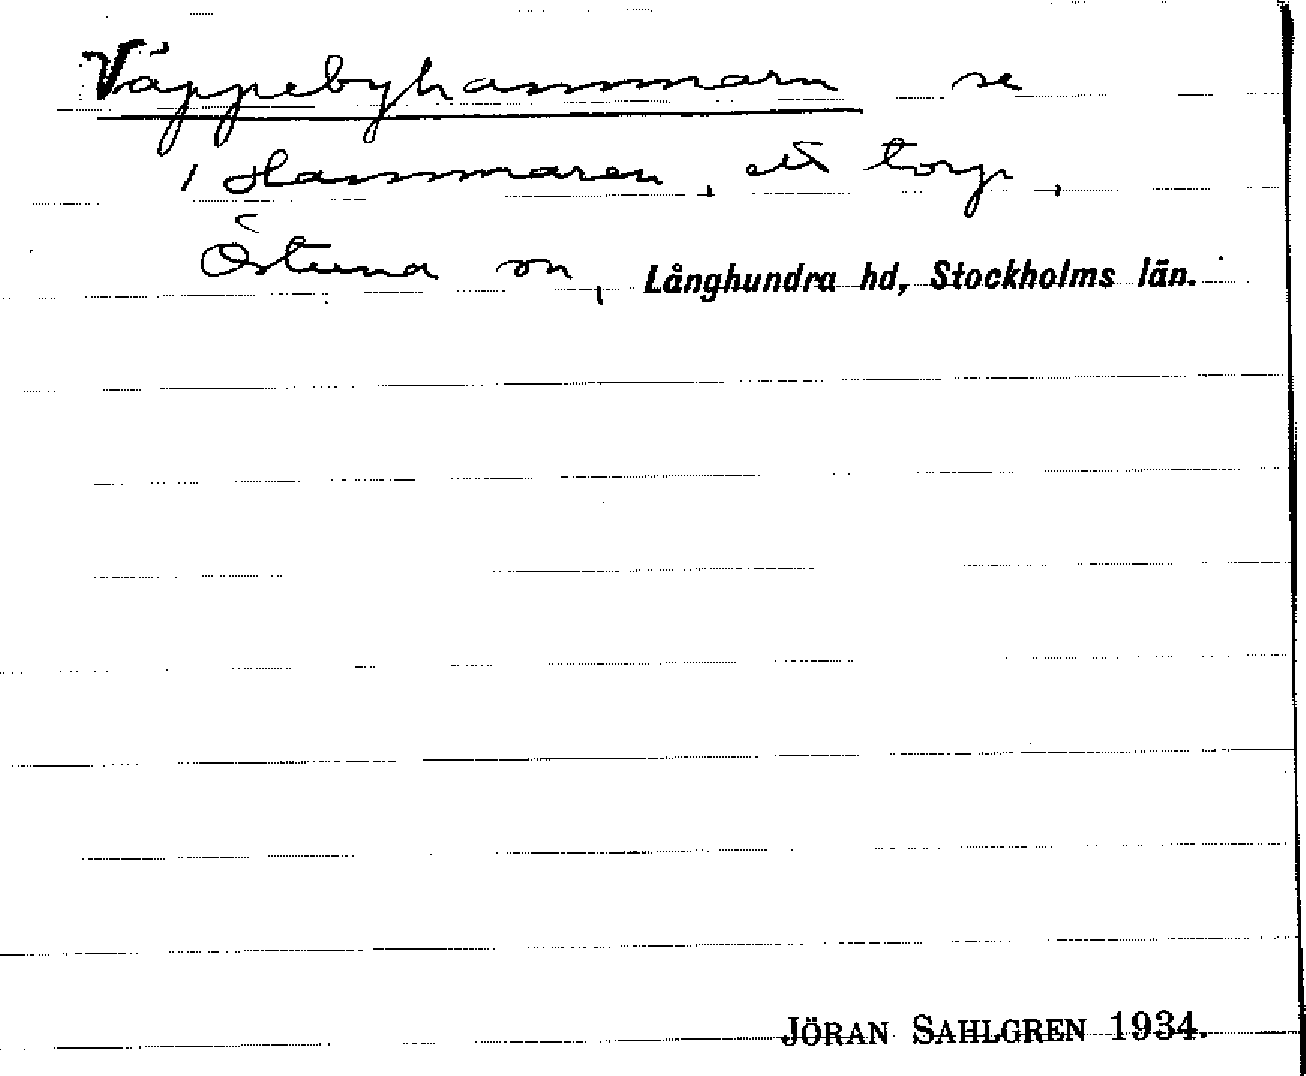 Väppebyhammarn se
1 Hammaren, ett torp,
Östuna sn, Långhundra hd, Stockholms län.
JÖRAN SAHLGREN 1934.